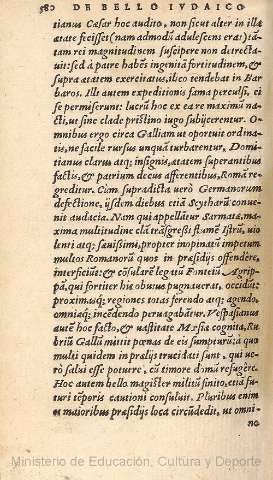 580 DE BELLO IVDAICO
tianus Cæsar hoc audito, non sicut alter in illa
ætate fecisset (nam admodũ adulescens erat) tã-
tam rei magnitudinem suscipere non detrecta-
uit: sed à patre habẽs ingenitã fortitudinem, &
supra ætatem exercitatus, ilico tendebat in Bar
baros. Illi autem expeditionis fama perculsi, ei
se permiserunt: lucrũ hoc ex ea re maximũ na-
cti, ut sine clade pristino iugo subijcerentur. O-
mnibus ergo circa Galliam ut oportuit ordina-
tis, ne facile rursus unquã turbarentur, Domi-
tianus clarus atq; insignis, ætatem superantibus
factis, & patrium decus afferentibus, Romã re-
greditur. Cum supradicta uerò Germanorum
defectione, ijsdem diebus etiã Scytharũ conue-
nit audacia. Nam qui appellãtur Sarmatæ, ma-
xima multitudine clã trãsgressi flumẽ Istrũ, uio
lenti atq; sæuissimi, propter inopinatũ impetum
multos Romanorũ quos in præsidijs offendere,
interficiũt: & cõsularẽ legatũ Fonteiũ Agrip-
pã, qui fortiter his obuius pugnauerat, occidũt:
proximasq; regiones totas ferendo atq; agendo,
omniaq; incẽdendo peruagabãtur. Vespasianus
autẽ hoc facto, & uastitate Mysiæ cognita, Ru
briũ Gallũ mittit pœnas de eis sumpturũ: à quo
multi quidem in prælijs trucidati sunt, qui ue-
rò salui esse potuere, cũ timore domũ refugere.
Hoc autem bello magister militũ finito, etiã fu-
turi tẽporis cautioni consuluit. Pluribus enim
et maioribus præsidijs loca circũdedit, ut omni-
no
Ministerio de Educación, Cultura y Deporte